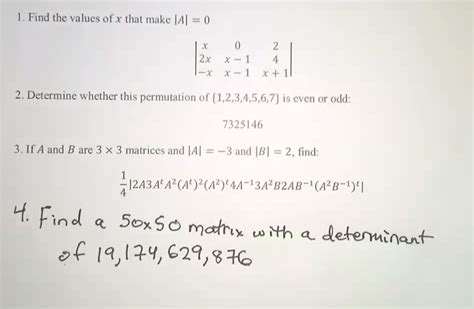 1. Find the values of x that make |A| = 0
x 0 2
2x x − 1 4
−x x − 1 x + 1
2. Determine whether this permutation of {1,2,3,4,5,6,7} is even or odd:
7325146
3. If A and B are 3 × 3 matrices and |A| = −3 and |B| = 2, find:
1/4 |2A3AᵗA²(Aᵗ)²(A²)ᵗ4A⁻¹3A²B2AB⁻¹(A²B⁻¹)ᵗ|
4. Find a 50x50 matrix with a determinant
of 19,174,629,876